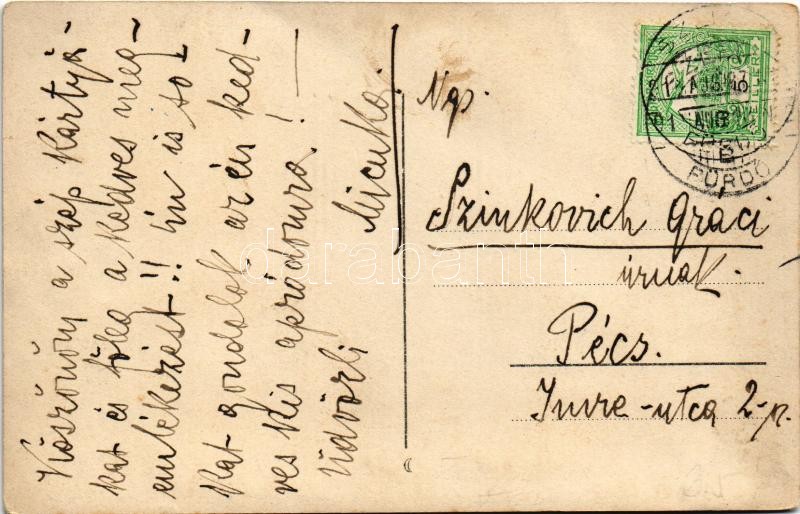 Köszönöm a szép kártyá-
kat és főleg a kedves meg-
emlékezést!! én is so-
kat gondolok az én ked-
ves kis apródomra!
Üdvözli
Micuka.
Ngs.
Szinkovich Graci
úrnak.
Pécs.
Imre-utca 2-
FÜRDŐ
darabanth